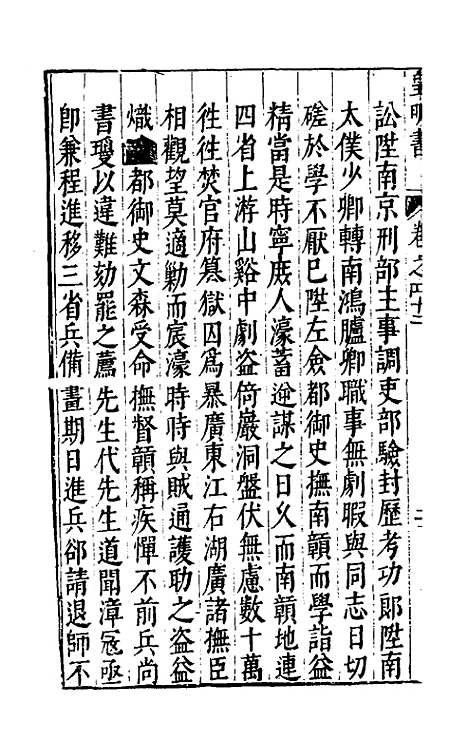 皇明書
卷之四十二
訟陞南京刑部主事調吏部驗封歷考功郎陞南
太僕少卿轉南鴻臚卿職事無劇暇與同志日切
磋於學不厭巳陞左僉都御史撫南贛而學詣益
精當是時寧庶人濠蓄逆謀之日久而南贛地連
四省上游山谿中劇盜倚巖洞盤伏無慮數十萬
徃徃焚官府篡獄囚爲暴廣東江右湖廣諸撫臣
相觀望莫適勦而宸濠時時與賊通護助之盜益
熾都御史文森受命撫督贛稱疾憚不前兵尚
書瓊以違難劾罷之薦先生代先生道聞漳冦亟
卽兼程進移三省兵備畫期日進兵郤請退師不